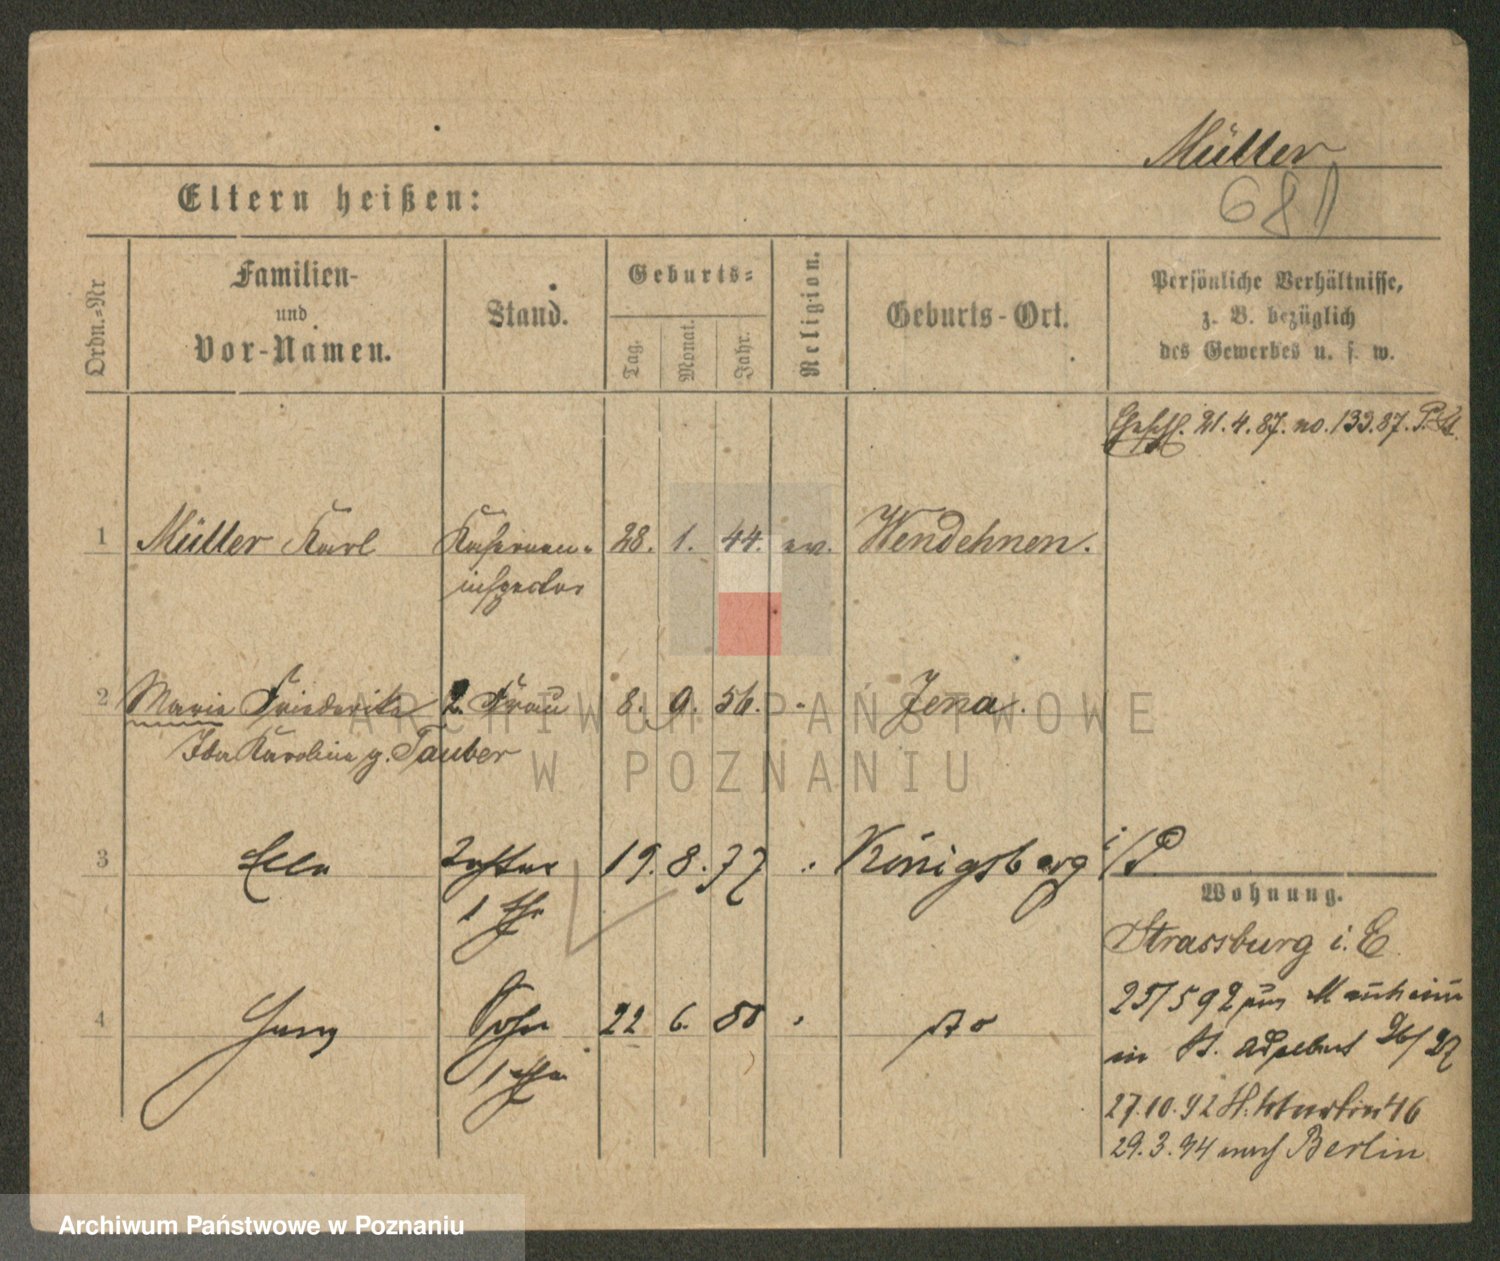 Müller
681
Eltern heißen:
Ordn.=Nr
Familien-
und
Vor-Namen.
Stand.
Geburts=
Tag.
Monat.
Jahr.
Religion.
Geburts-Ort.
Persönliche Verhältnisse,
z. B. bezüglich
des Gewerbes u. s. w.
21.4.87. no. 133.87.
1 Müller Karl Kasernen- 28. 1. 44. ev. Wendehnen.
inspector
2 Marie Friederike 2. Frau 8. 9. 56. Jena.
Ida Karoline g. Tauber
3 Ella Tochter 19. 8. 77 Königsberg i/P
1 Ehe
Wohnung.
Strassburg i. E.
25/5 92 aus Mannheim
4 Sohn 22 6. 80 do
1 Ehe
in St. Adalbert 26/27
27.10.92 St. Martin 46
29.3.94 nach Berlin
ARCHIWUM PAŃSTWOWE
W POZNANIU
Archiwum Państwowe w Poznaniu